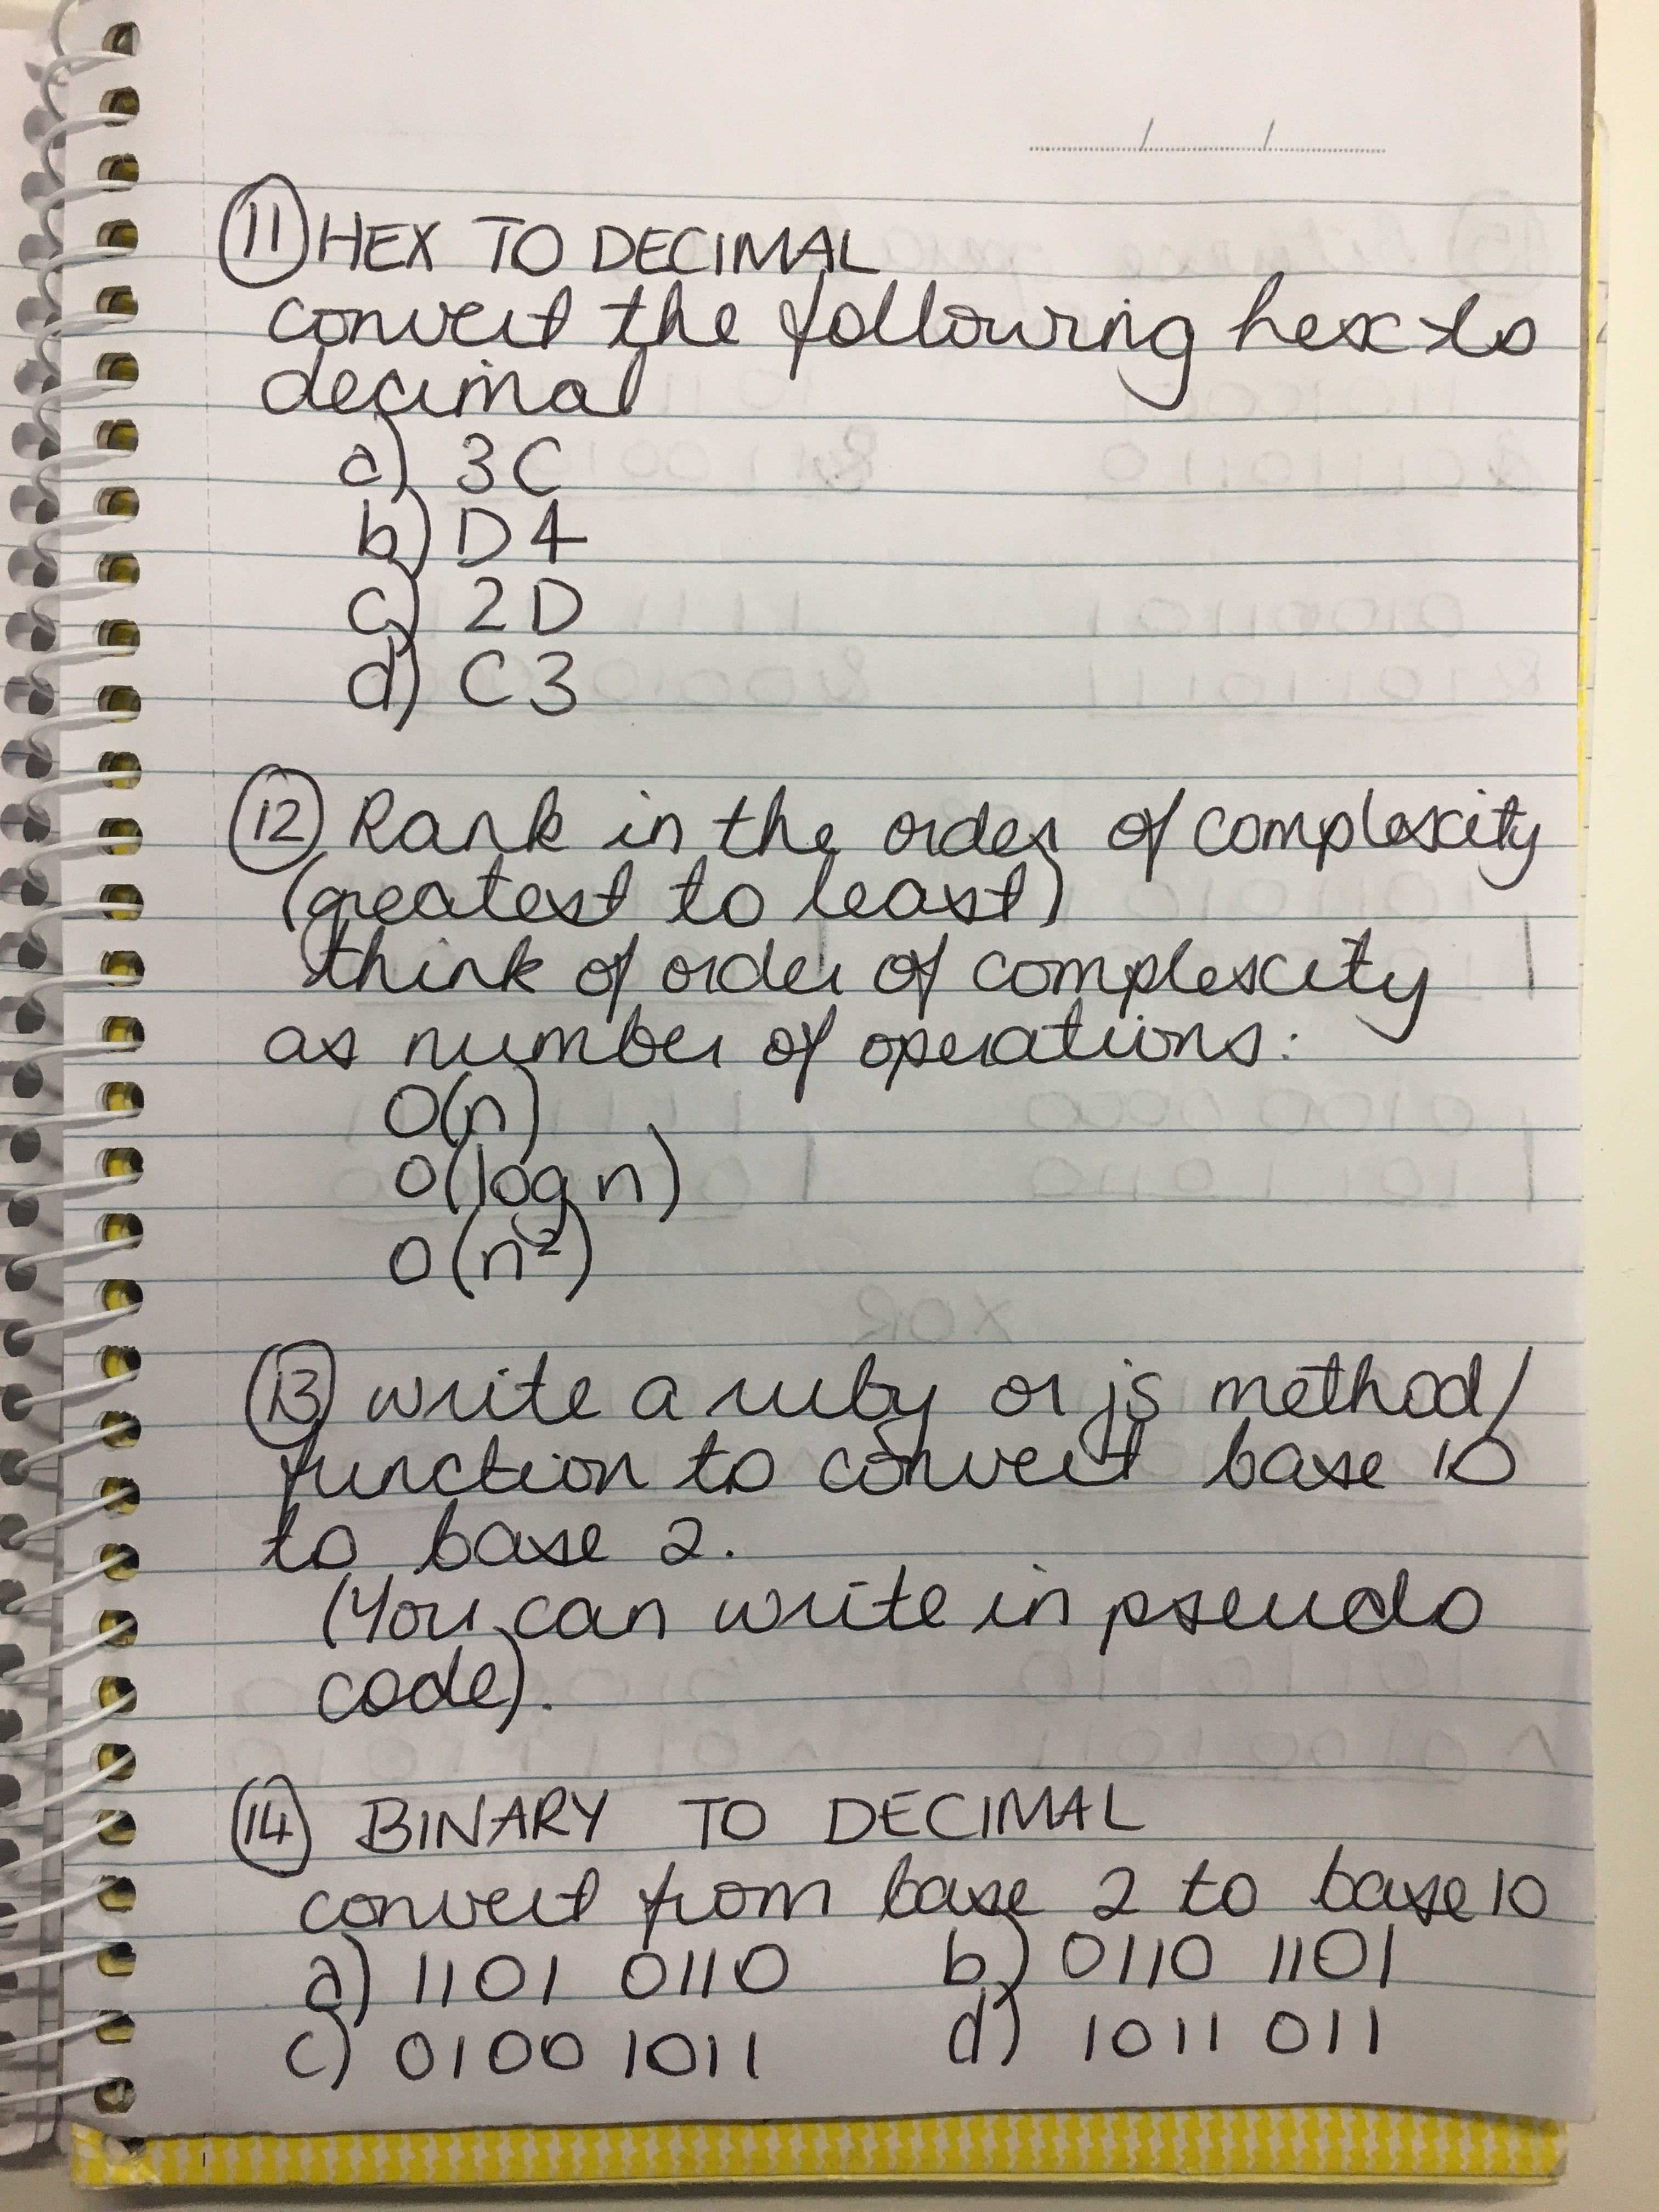 11 HEX TO DECIMAL
convert the following hex to
decimal
a) 3C
b) D4
c) 2D
d) C3
12 Rank in the order of complexity
(greatest to least)
think of order of complexity
as number of operations:
O(n)
O(log n)
O(n²)
13 write a ruby or js method/
function to convert base 10
to base 2.
(You can write in pseudo
code).
14 BINARY TO DECIMAL
convert from base 2 to base 10
a) 1101 0110 b) 0110 1101
c) 0100 1011 d) 1011 011